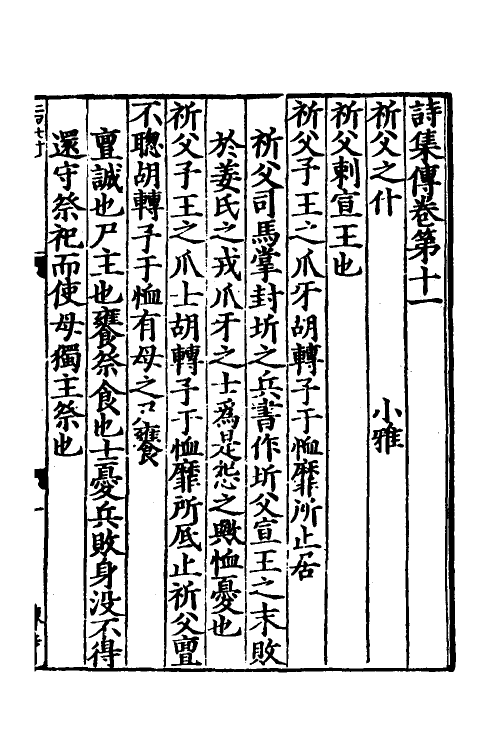 詩集傳卷第十一
祈父之什　　　小雅
祈父刺宣王也
祈父予王之爪牙胡轉予于恤靡所止居
祈父司馬掌封圻之兵書作圻父宣王之末敗
於姜氏之戎爪牙之士為是怨之歟恤憂也
祈父予王之爪士胡轉予于恤靡所底止祈父亶
不聰胡轉予于恤有母之尸饔
亶誠也尸主也饔祭食也士憂兵敗身没不得
還守祭祀而使母獨主祭也